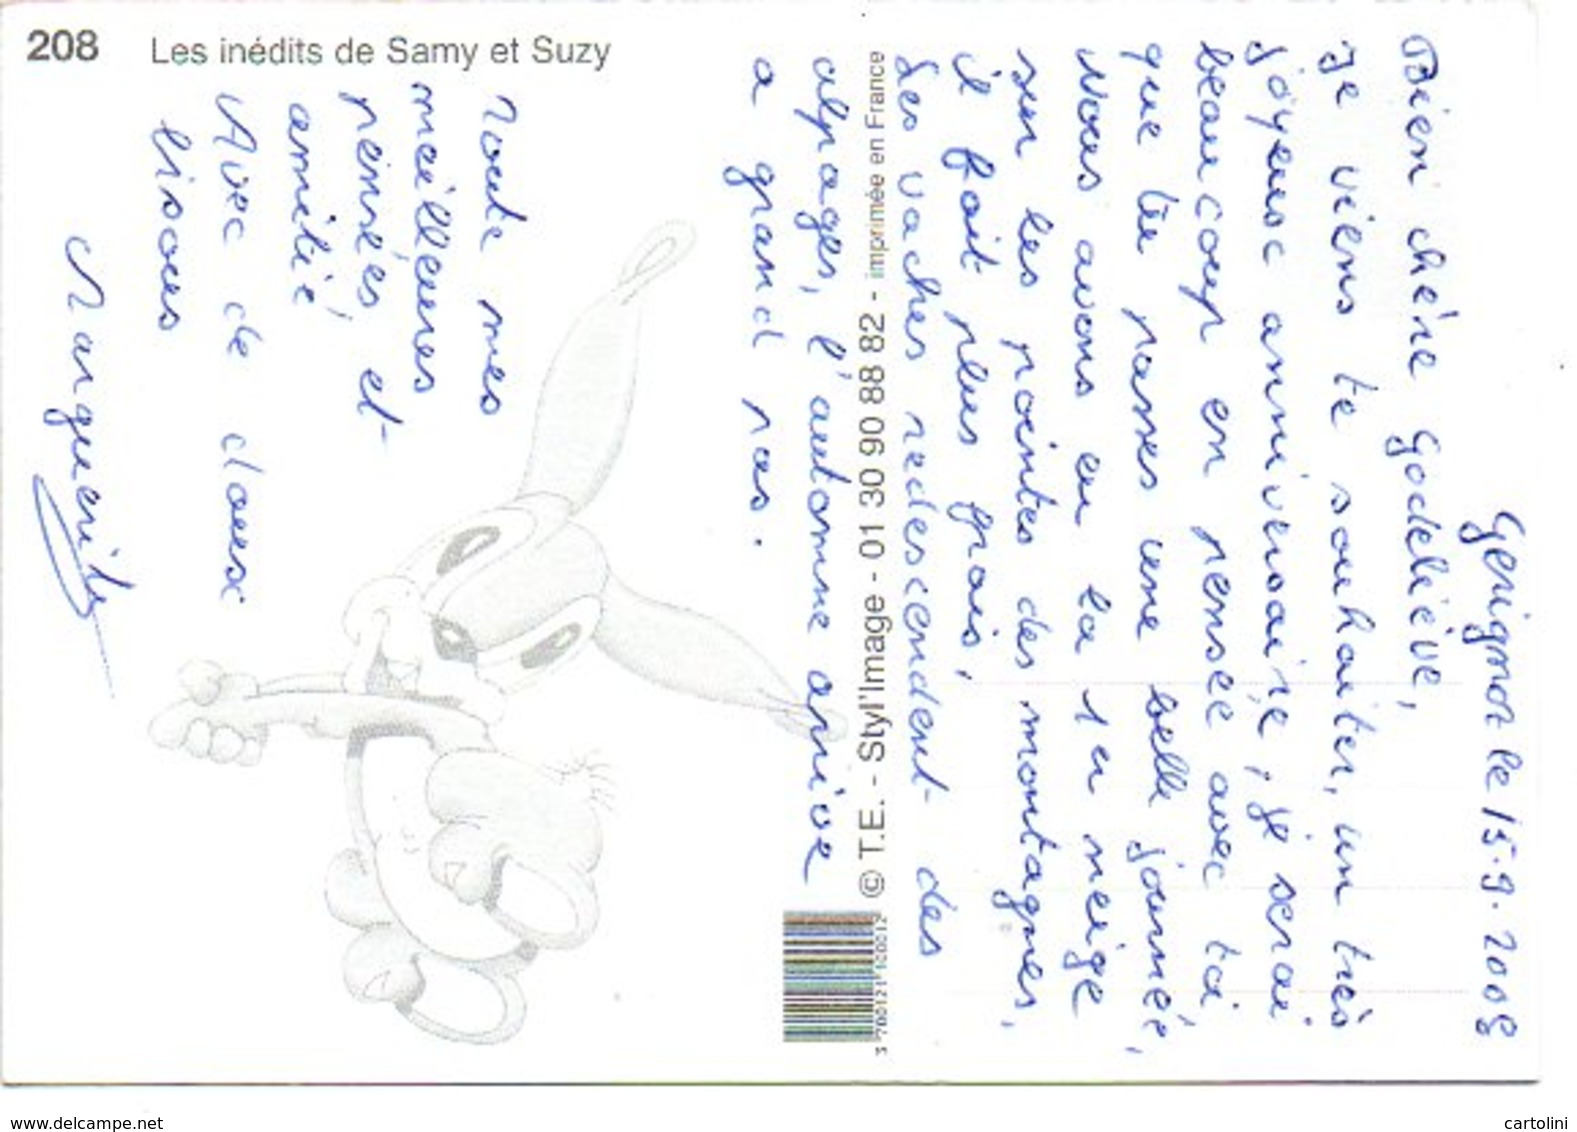 208 Les inédits de Samy et Suzy
Gerignoz le 15.9.2008
Bien chère Godeliève,
Je viens te souhaiter, un très
joyeux anniversaire, je serai
beaucoup en pensée avec toi,
que tu passes une belle journée,
Nous avons eu la 1er neige
sur les pointes des montagnes,
il fait plus frais,
Les vaches redescendent des
alpages, l'automne arrive
a grand pas.
Toute mes
meilleures
pensées, et
amitié
Avec de doux
bisous
Marguerite
© T.E. - Styl'Image - 01 30 90 88 82 - imprimée en France
3 700121 100012
www.delcampe.net
cartolini